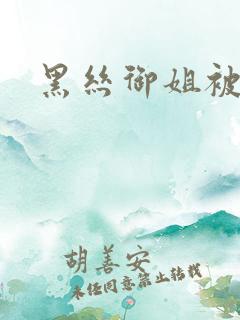 黑丝御姐被
胡善安
未经同意禁止转载